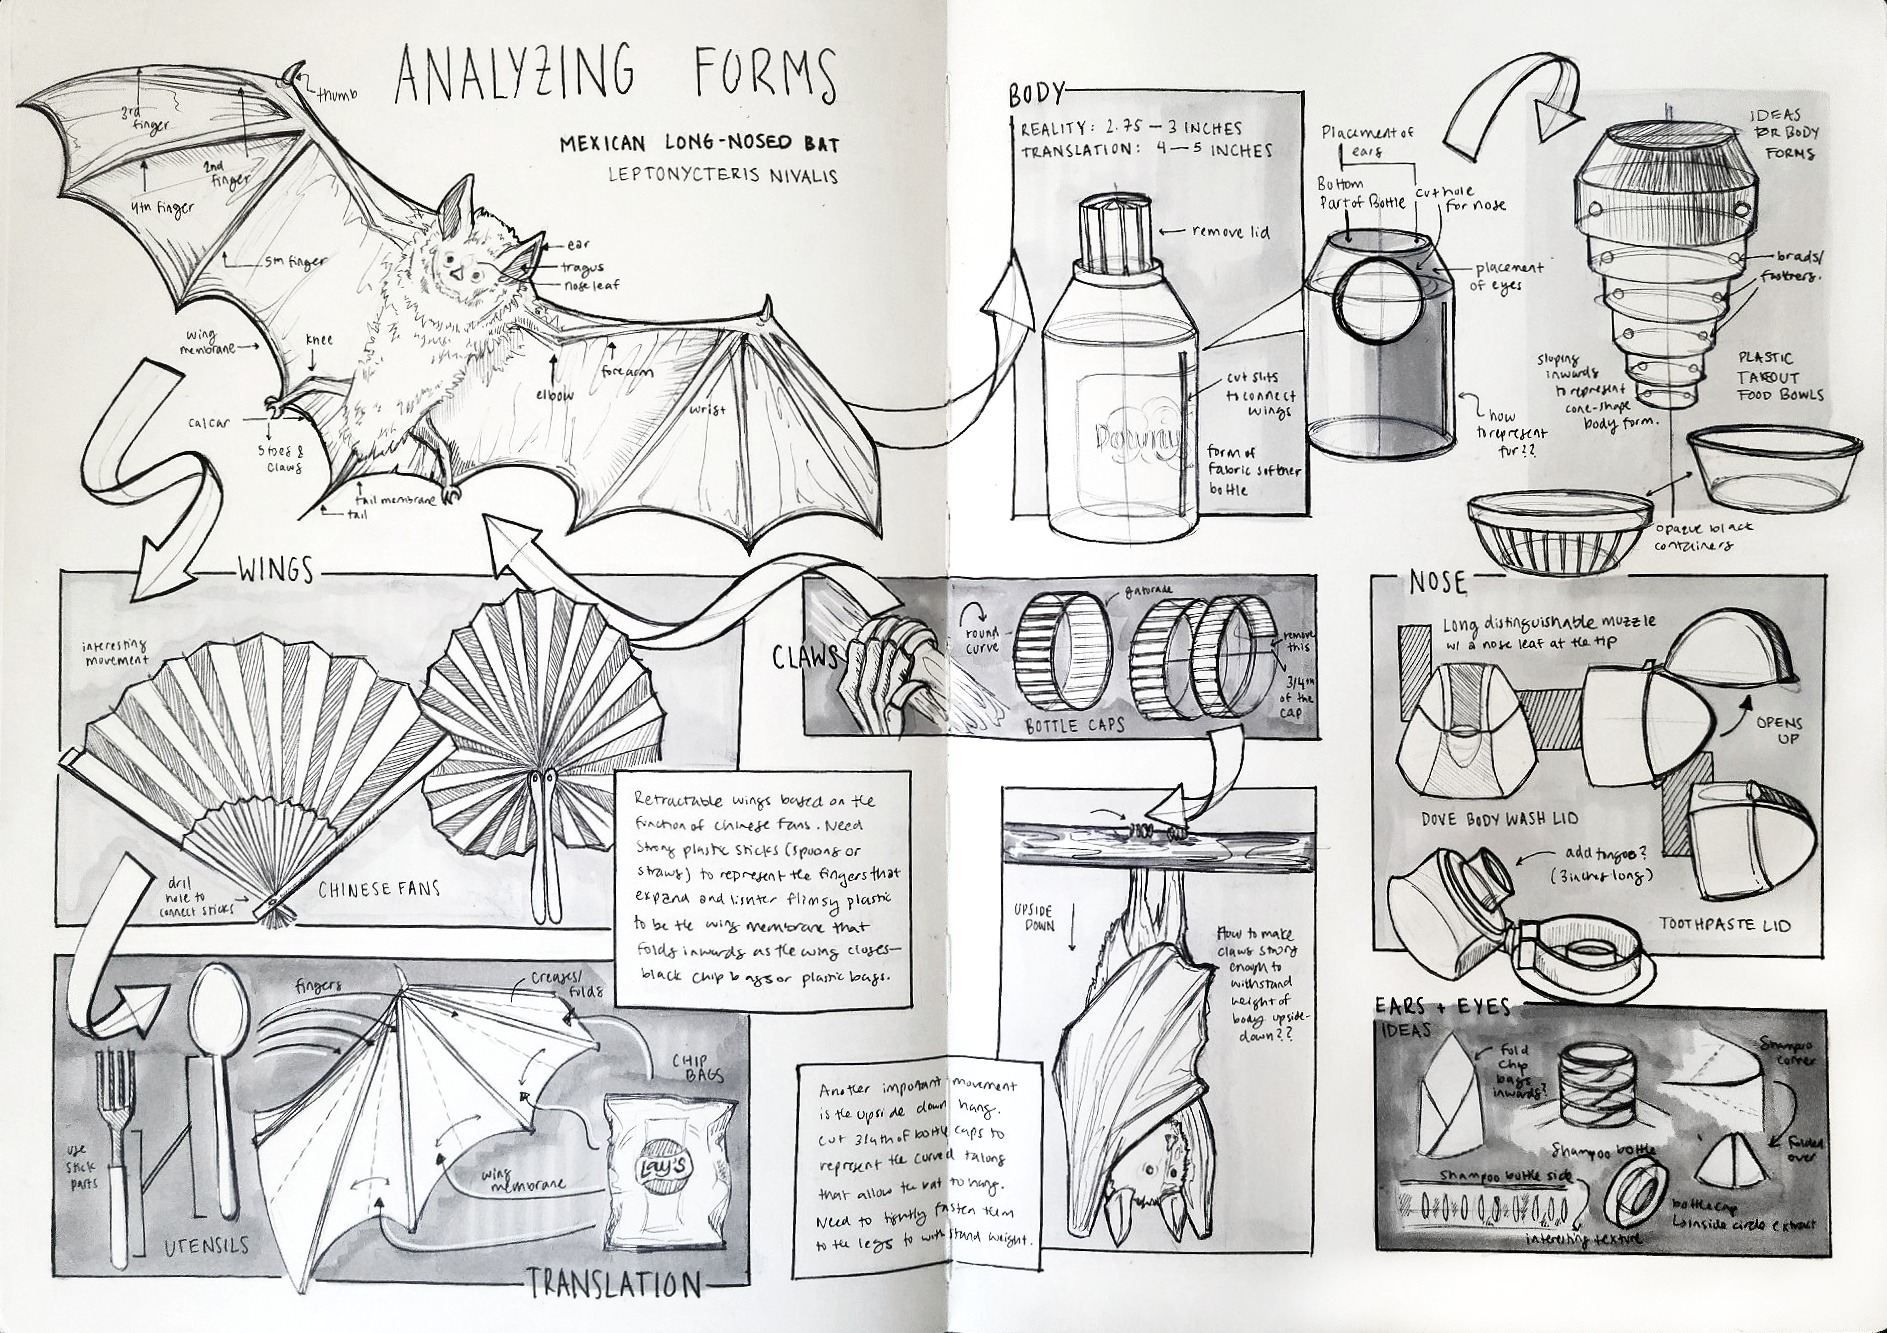 ANALYZING FORMS
MEXICAN LONG-NOSED BAT
LEPTONYCTERIS NIVALIS
thumb
3rd
finger
2nd
finger
4th finger
5th finger
ear
tragus
nose leaf
wing
membrane
knee
calcar
5 toes &
claws
tail membrane
tail
elbow
forearm
wrist
WINGS
interesting
movement
dril
hole to
connect sticks
CHINESE FANS
Retractable wings based on the
function of chinese fans. Need
strong plastic sticks (spoons or
straws) to represent the fingers that
expand and lighter flimsy plastic
to be the wing membrane that
folds inwards as the wing closes—
black chip bags or plastic bags.
fingers
creases/
folds
CHIP
BAGS
Lay's
wing
membrane
use
stick
parts
UTENSILS
TRANSLATION
BODY
REALITY: 2.75 — 3 INCHES
TRANSLATION: 4 — 5 INCHES
remove lid
cut slits
to connect
wings
Downy
form of
fabric softner
bottle
Placement of
ears
Bottom
Part of Bottle
cut hole
for nose
placement
of eyes
how
to represent
fur??
IDEAS
FOR BODY
FORMS
brads/
fastners.
sloping
inwards
to represent
cone-shape
body form.
PLASTIC
TAKEOUT
FOOD BOWLS
opaque black
containers
CLAWS
round
curve
gatorade
remove
this
3/4th
of the
cap
BOTTLE CAPS
UPSIDE
DOWN
How to make
claws strong
enough to
withstand
weight of
body upside-
down??
Another important movement
is the upside down hang.
Cut 3/4th of bottle caps to
represent the curved talons
that allow the bat to hang.
Need to tightly fasten them
to the legs to withstand weight.
NOSE
Long distinguishable muzzle
w/ a nose leaf at the tip
OPENS
UP
DOVE BODY WASH LID
add tongue?
(3 inches long)
TOOTHPASTE LID
EARS + EYES
IDEAS
Fold
chip
bags
inwards?
Shampoo
corner
Shampoo bottle
Folded
over
Shampoo bottle side
interesting texture
bottle cap
inside circle extract